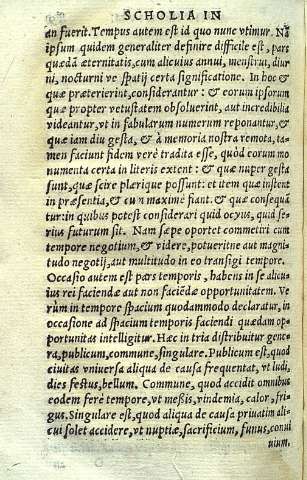 SCHOLIA IN
an fuerit. Tempus autem est id quo nunc vtimur. Nã
ipsum quidem generaliter definire difficile est, pars
quædã æternitatis, cum alicuius annui, menstrui, diur
ni, nocturni ve spatij certa significatione. In hoc &
quæ præterierint, considerantur: & eorum ipsorum
quæ propter vetustatem obsoluerint, aut incredibilia
videantur, vt in fabularum numerum reponantur, &
quæ iam diu gesta, & à memoria nostra remota, ta-
men faciunt fidem verè tradita esse, quòd eorum mo
numenta certa in literis extent: & quæ nuper gesta
sunt, quæ scire plærique possunt: et item quæ instent
in præsentia, & cu m maximè fiant. & quæ consequã
tur: in quibus potest considerari quid ocyus, quid se-
rius futurum sit. Nam sæpe oportet commetiri cum
tempore negotium, & videre, potueritne aut magni
tudo negotij, aut multitudo in eo transigi tempore.
Occasio autem est pars temporis, habens in se alicu
ius rei faciendæ aut non faciẽdæ opportunitatem. Ve
rùm in tempore spacium quodammodo declaratur, in
occasione ad spacium temporis faciendi quædam op-
portunitas intelligitur. Hæc in tria distribuitur gene
ra, publicum, commune, singulare. Publicum est, quod
ciuitas vniuersa aliqua de causa frequentat, vt ludi,
dies festus, bellum. Commune, quod accidit omnibus
eodem ferè tempore, vt meßis, vindemia, calor, fri-
gus. Singulare est, quod aliqua de causa priuatim ali-
cui solet accidere, vt nuptiæ, sacrificium, funus, conui
uium.